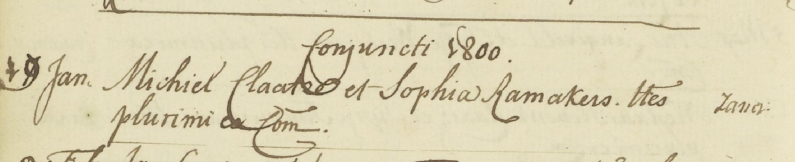 Conjuncti 1800.
19 Jan. Michiel Claatze et Sophia Ramakers. ttes Janr.
plurimi ex Com.